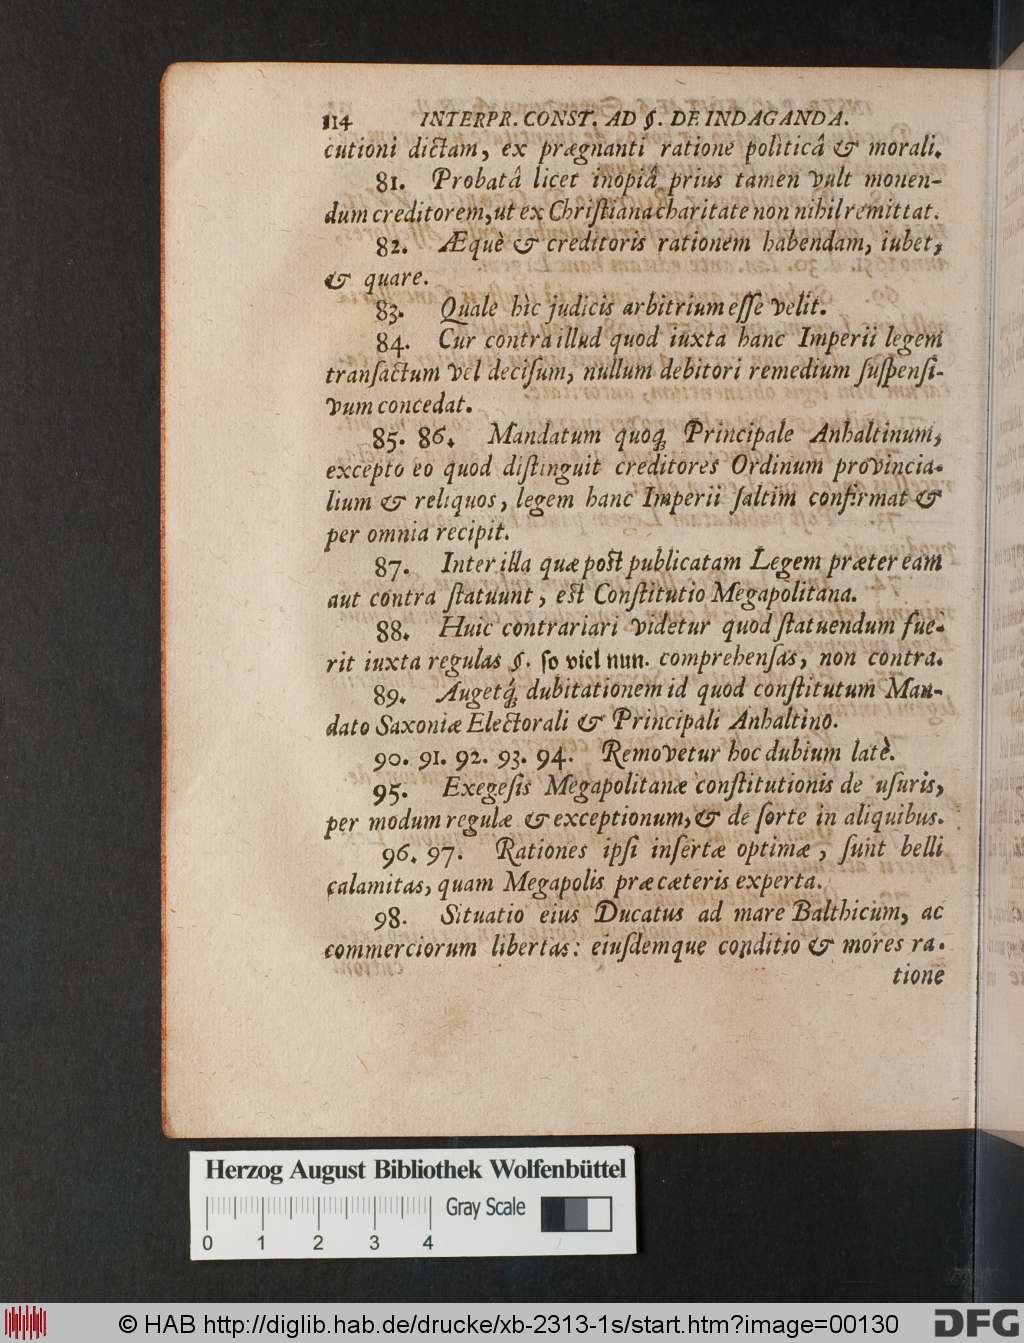 114 INTERPR. CONST. AD §. DE INDAGANDA.
cutioni dictam, ex prægnanti ratione politicâ & morali.
81. Probatâ licet inopiâ prius tamen vult monen-
dum creditorem, ut ex Chriſtiana charitate non nihil remittat.
82. Æquè & creditoris rationem habendam, iubet,
& quare.
83. Quale hìc judicis arbitrium eſſe velit.
84. Cur contra illud quod iuxta hanc Imperii legem
tranſactum vel deciſum, nullum debitori remedium ſuſpenſi-
vum concedat.
85. 86. Mandatum quoq; Principale Anhaltinum,
excepto eo quod diſtinguit creditores Ordinum provincia-
lium & reliquos, legem hanc Imperii ſaltim confirmat &
per omnia recipit.
87. Inter illa quæ poſt publicatam Legem præter eam
aut contra ſtatuunt, eſt Conſtitutio Megapolitana.
88. Huic contrariari videtur quod ſtatuendum fue-
rit iuxta regulas §. ſo viel nun. comprehenſas, non contra.
89. Augetq́; dubitationem id quod conſtitutum Man-
dato Saxoniæ Electorali & Principali Anhaltino.
90. 91. 92. 93. 94. Removetur hoc dubium latè.
95. Exegeſis Megapolitanæ conſtitutionis de uſuris,
per modum regulæ & exceptionum, & de ſorte in aliquibus.
96. 97. Rationes ipſi inſertæ optimæ, ſunt belli
calamitas, quam Megapolis præ cæteris experta.
98. Situatio eius Ducatus ad mare Balthicum, ac
commerciorum libertas: eiuſdemque conditio & mores ra-
tione
Herzog August Bibliothek Wolfenbüttel
Gray Scale
0 1 2 3 4
© HAB http://diglib.hab.de/drucke/xb-2313-1s/start.htm?image=00130
DFG